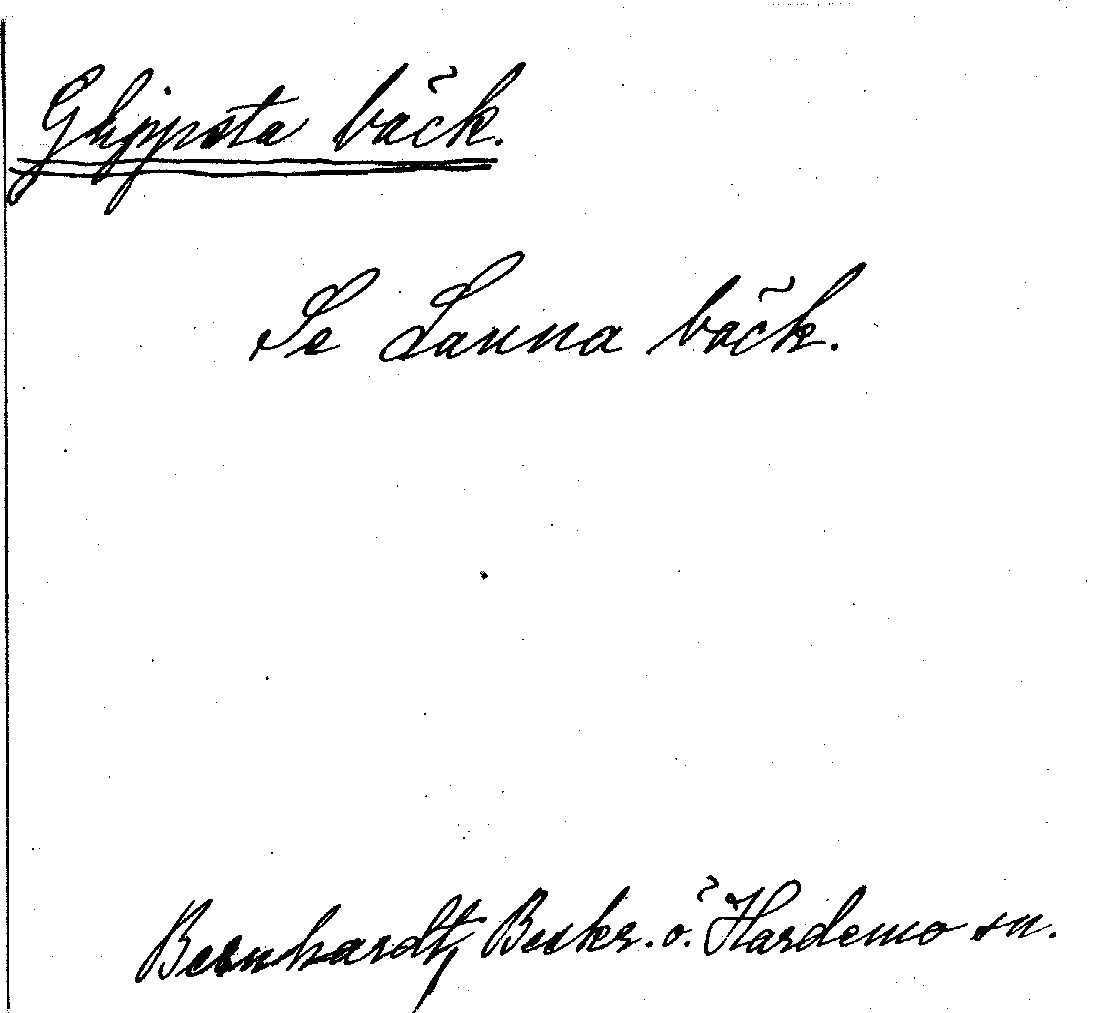 Glippsta bäck.
Se Lanna bäck.
Bernhardt, Beskr. ö. Hardemo sn.